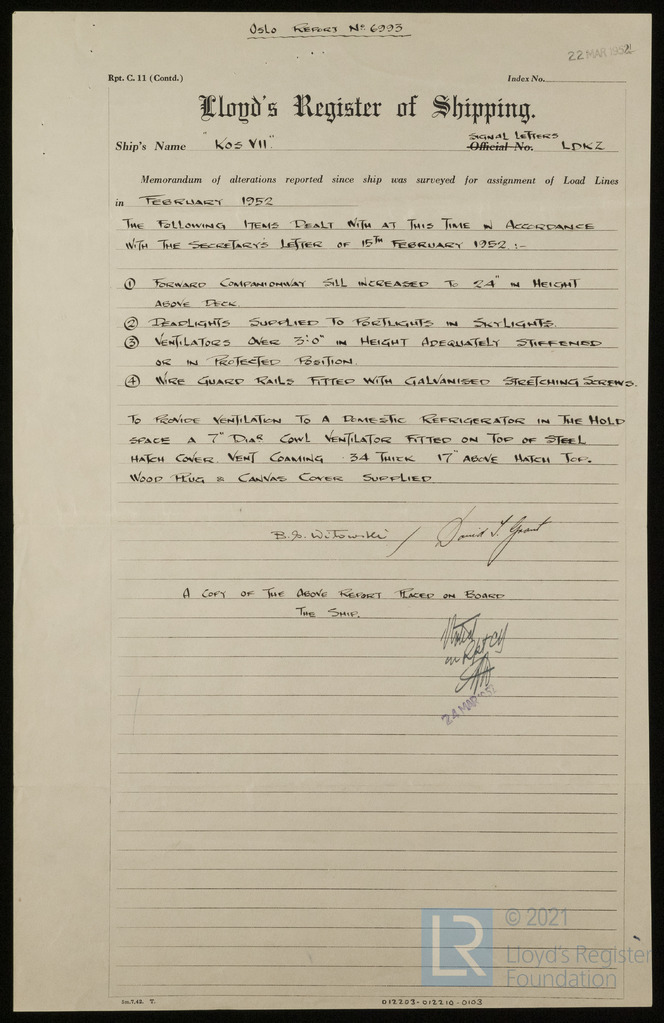 OSLO REPORT No 6993
22 MAR 1952
Rpt. C. 11 (Contd.)
Index No.
Lloyd's Register of Shipping.
SIGNAL LETTERS
Ship's Name "KOS VII" Official No. LDKZ
Memorandum of alterations reported since ship was surveyed for assignment of Load Lines
in FEBRUARY 1952
THE FOLLOWING ITEMS DEALT WITH AT THIS TIME IN ACCORDANCE
WITH THE SECRETARY'S LETTER OF 15TH FEBRUARY 1952 :-
① FORWARD COMPANIONWAY SILL INCREASED TO 24" IN HEIGHT
ABOVE DECK.
② DEADLIGHTS SUPPLIED TO PORTLIGHTS IN SKYLIGHTS.
③ VENTILATORS OVER 3'.0" IN HEIGHT ADEQUATELY STIFFENED
OR IN PROTECTED POSITION.
④ WIRE GUARD RAILS FITTED WITH GALVANISED STRETCHING SCREWS.
TO PROVIDE VENTILATION TO A DOMESTIC REFRIGERATOR IN THE HOLD
SPACE A 7" DIAR COWL VENTILATOR FITTED ON TOP OF STEEL
HATCH COVER. VENT COAMING .34 THICK 17" ABOVE HATCH TOP.
WOOD PLUG & CANVAS COVER SUPPLIED.
B.S. Witowski / David T. Grant
A COPY OF THE ABOVE REPORT PLACED ON BOARD
THE SHIP.
Noted
in Rpt C11
24 MAR 1952
© 2021
LR
Lloyd's Register
Foundation
1m.7.42. T.
012203-012210-0103